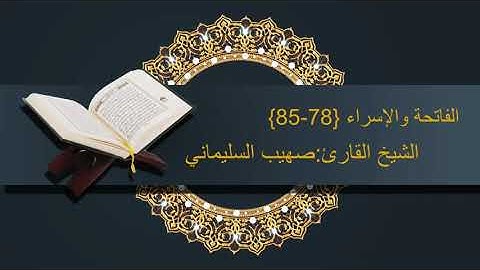 الفاتحة والإسراء {78-85}
الشيخ القارئ:صهيب السليماني